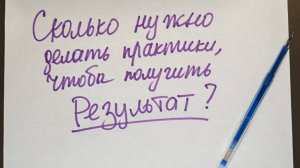 Сколько нужно
делать практики,
чтобы получить
Результат?